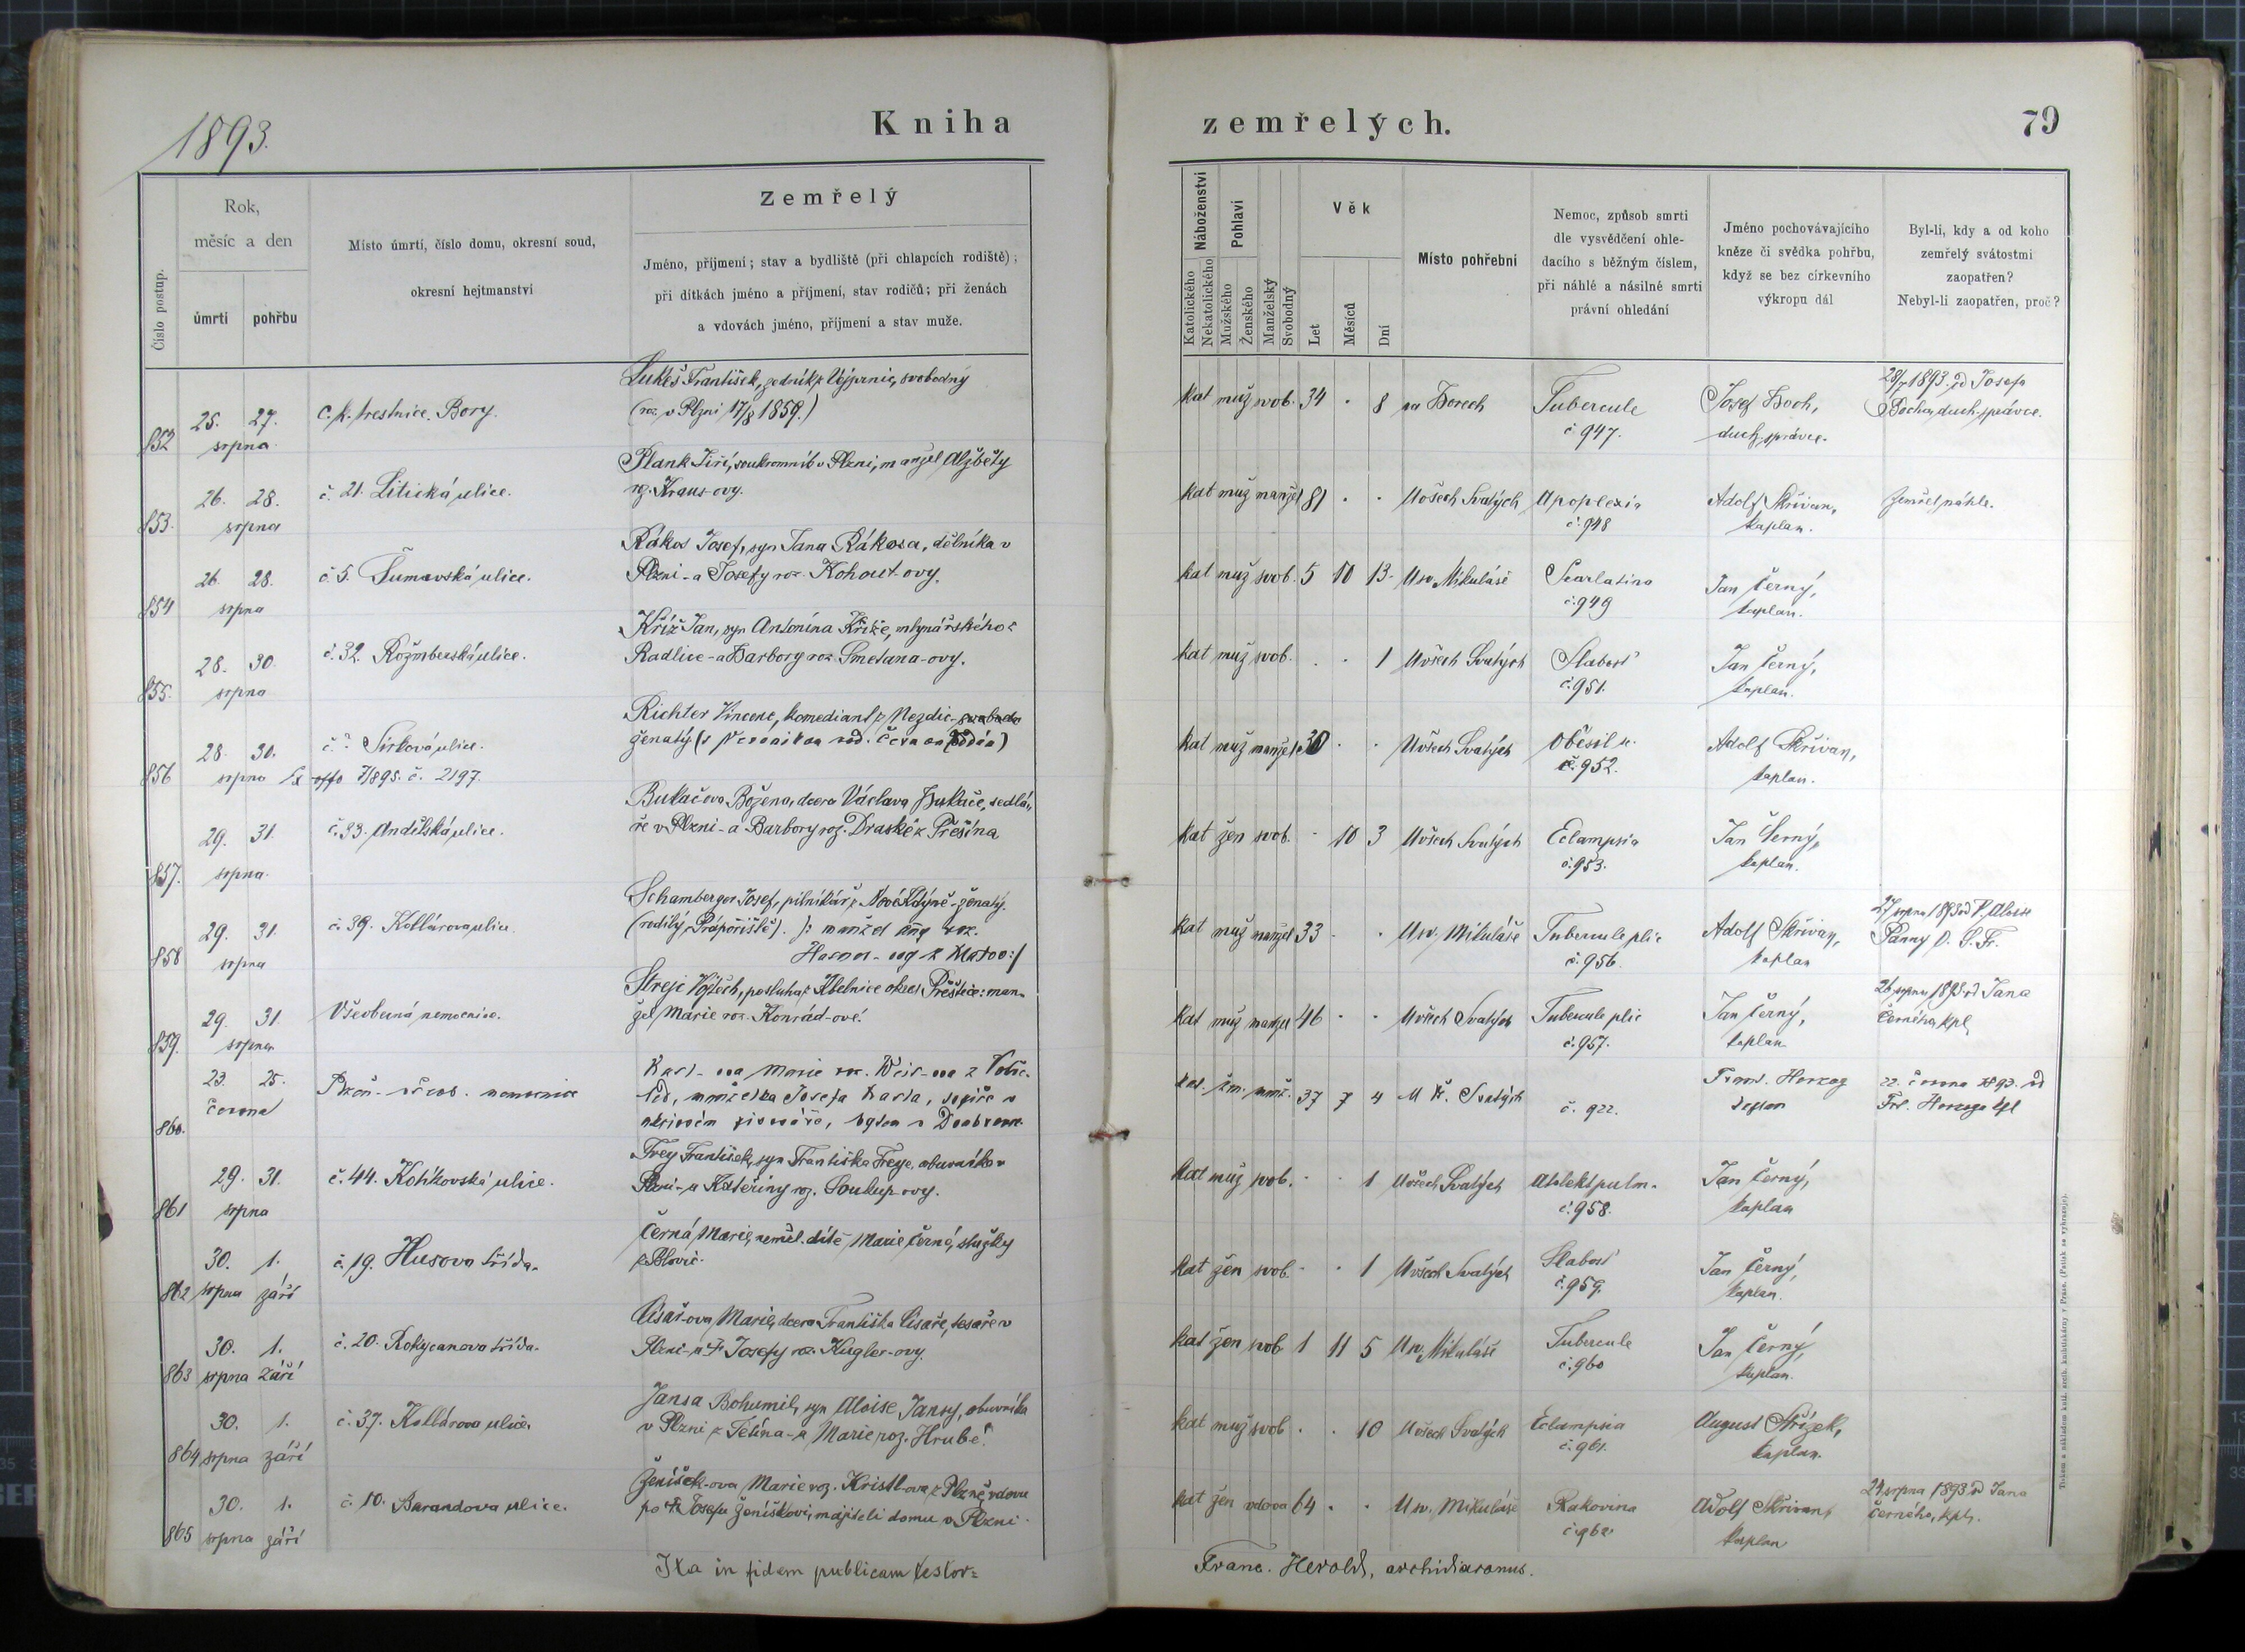 1893.
Kniha
zemřelých.
79
Číslo postup.
Rok,
měsíc a den
úmrtí
pohřbu
Místo úmrtí, číslo domu, okresní soud,
okresní hejtmanství
Zemřelý
Jméno, příjmení; stav a bydliště (při chlapcích rodiště);
při dítkách jméno a příjmení, stav rodičů; při ženách
a vdovách jméno, příjmení a stav muže.
Náboženství
Katolického
Nekatolického
Pohlaví
Mužského
Ženského
Manželský
Svobodný
Věk
Let
Měsíců
Dní
Místo pohřební
Nemoc, způsob smrti
dle vysvědčení ohle-
dacího s běžným číslem,
při náhlé a násilné smrti
právní ohledání
Jméno pochovávajícího
kněze či svědka pohřbu,
když se bez církevního
výkropu dál
Byl-li, kdy a od koho
zemřelý svátostmi
zaopatřen?
Nebyl-li zaopatřen, proč?
852 25. 27. srpna
c.k. trestnice Bory.
Lukeš František, svobodný
(nar. v Plzni 17/8 1859.)
kat muž svob. 34 . 8 na Borech
Tubercule
č 947.
Josef Boch,
duch. správce.
28/7 1893. od Josefa
Bocha, duch. správce.
853. 26. 28. srpna
č. 21. Litická ulice.
Plank Jiří, soukromník v Plzni, manžel Alžběty
roz. Kraus-ovy.
kat muž manžel 81 . . U všech Svatých
Apoplexia
č. 948
Adolf Skřivan,
kaplan.
Zemřel náhle.
854 26. 28. srpna
č 5. Šumavská ulice.
Rákos Josef, syn Jana Rákosa, dělníka v
Plzni - a Josefy roz. Kohout-ovy.
kat muž svob. 5 10 13. U sv. Mikuláše
Scarlatina
č. 949
Jan Černý,
kaplan.
855. 28. 30. srpna
č. 32. Rožmberská ulice.
Kříž Jan, syn Antonína Kříže, mlynářského z
Radlice - a Barbory roz. Smetana-ovy.
kat muž svob. . . 1 U všech Svatých
Slabost
č. 951.
Jan Černý,
kaplan.
856 28. 30. srpna
Ex offo 7/895. č. 2197.
Richter Vincenc, komediant z Nezdic -
ženatý
kat muž manžel 30 . . U všech Svatých
Oběsil se.
č. 952.
Adolf Skřivan,
kaplan.
857. 29. 31. srpna.
č. 33. Andělská ulice.
Bukačova Božena, dcera Václava Bukače, sedlá-
ře v Plzni - a Barbory roz. Draské z Přešína
kat žen svob. . 10 3 U všech Svatých
Eclampsia
č. 953.
Jan Černý,
kaplan.
858 29. 31. srpna
č. 39. Kollárova ulice.
Schamberger Josef, pilníkář z Nové Kdyně - ženatý.
kat muž manžel 33 . . U sv. Mikuláše
Tubercule plic
č. 956.
Adolf Skřivan,
kaplan
27 srpna 1893 od P. Aloise
Panny O. S. Fr.
859. 29. 31. srpna
Všeobecná nemocnice.
Strejc Vojtěch, posluha z okres Přeštice: man-
žel Marie roz. Konrád-ové.
kat muž manžel 46 . . U všech Svatých
Tubercule plic
č. 957.
Jan Černý,
kaplan
26 srpna 1893 od Jana
Černého, kpl.
860. 23. 25. června
Plzeň - všeob. nemocnice
Marie roz.
manželka Josefa
kat. žen. manž. 37 7 4 U vš. Svatých
č. 922.
Frant. Herzog
kaplan
22. června 1893. od
Fr. Herzoga kpl
861 29. 31. srpna
č. 44. Kotíkovská ulice.
Frey František, syn Františka Freye, obuvníka v
Plzni - a Kateřiny roz. Soukup-ovy.
kat muž svob. . . 1 U všech Svatých
Atelekt pulm.
č. 958.
Jan Černý,
kaplan
862 30. 1. srpna září
č. 19. Husova třída.
Černá Marie, nemžl. dítě Marie Černé, služky
z Blovic.
kat žen svob. . . 1 U všech Svatých
Slabost
č. 959.
Jan Černý,
kaplan.
863 30. 1. srpna září
č. 20. Rokycanova třída.
Císař-ova Marie, dcera Františka Císaře, tesaře v
Plzni - a † Josefy roz. Kugler-ovy.
kat žen svob 1 11 5 U sv. Mikuláše
Tubercule
č. 960
Jan Černý,
kaplan.
864 30. 1. srpna září
č. 37. Kollárova ulice.
Jansa Bohumil, syn Aloise Jansy, obuvníka
v Plzni z Tetína - a Marie roz. Hrubé.
kat muž svob . . 10 U všech Svatých
Eclampsia
č. 961.
August Střízek,
kaplan.
865 30. 1. srpna září
č. 10. Barandova ulice.
Ženíšek-ova Marie roz. Kristl-ova z Plzně, vdova
po † Josefu Ženíškovi, majiteli domu v Plzni.
kat žen vdova 64 . . U sv. Mikuláše
Rakovina
č. 962
Adolf Skřivan,
kaplan
24 srpna 1893 od Jana
Černého, kpl.
Ita in fidem publicam testor:
Franc. Herold, archidiaconus.